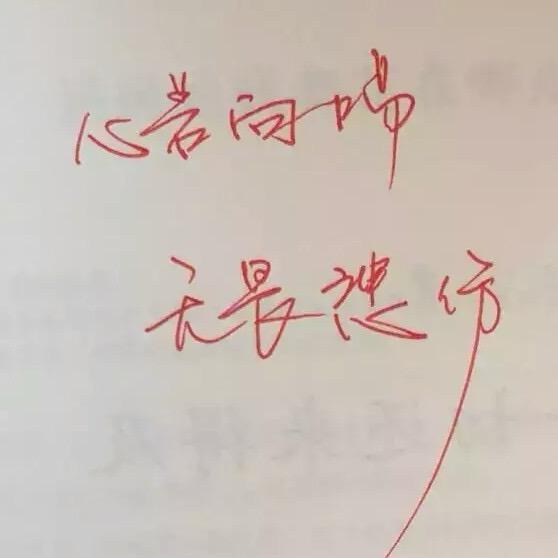 心若向陽
无畏悲伤